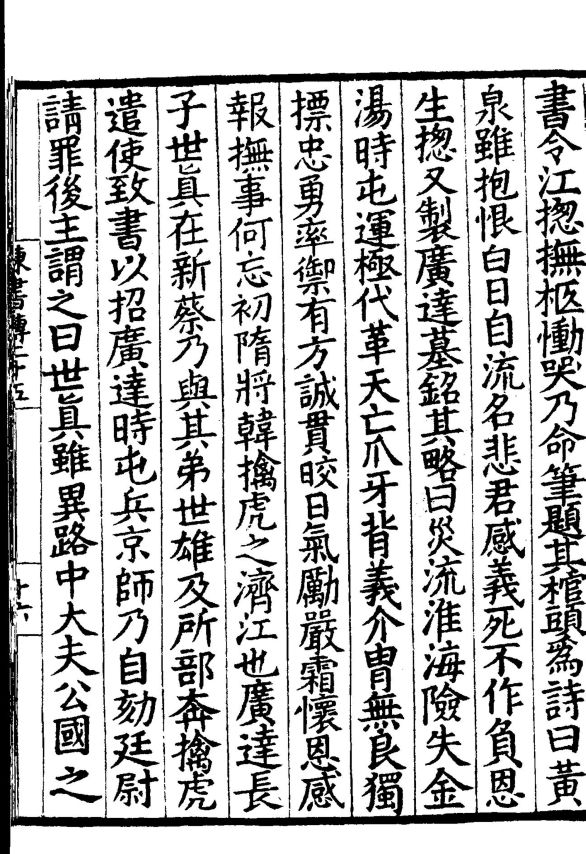 書令江揔撫柩慟哭乃命筆題其棺頭爲詩曰黃
泉雖抱恨白日自流名悲君感義死不作負恩
生揔又製廣達墓銘其略曰災流淮海險失金
湯時屯運極代革天亡爪牙背義介胄無良獨
摽忠勇率禦有方誠貫皎日氣勵嚴霜懷恩感
報撫事何忘初隋將韓擒虎之濟江也廣達長
子世眞在新蔡乃與其弟世雄及所部奔擒虎
遣使致書以招廣達時屯兵京師乃自劾廷尉
請罪後主謂之曰世眞雖異路中大夫公國之
陳書傳二十五
十六